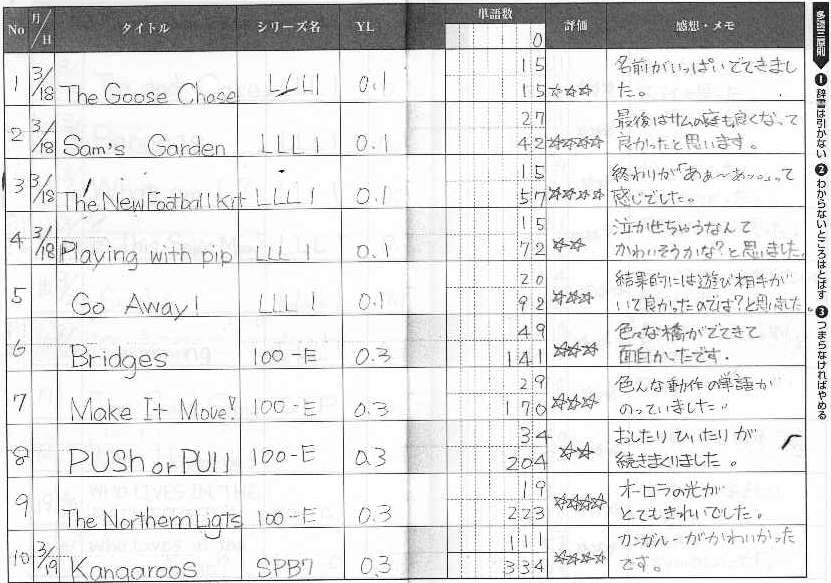 No 月/日 タイトル シリーズ名 YL 単語数 評価 感想・メモ
0
1 3/18 The Goose Chase LLL1 0.1 15 15 ☆☆☆ 名前がいっぱいでてきまし
た。
2 3/18 Sam's Garden LLL 1 0.1 27 42 ☆☆☆☆ 最後はサムの庭も良くなって
良かったと思います。
3 3/18 The New Football Kit LLL 1 0.1 15 57 ☆☆☆☆ 終わりが「あぁ〜あッ。」って
感じでした。
4 3/18 Playing with pip LLL 1 0.1 15 72 ☆☆ 泣かせちゃうなんて
かわいそうかな?と思いました。
5 Go Away! LLL 1 0.1 20 92 ☆☆☆ 結果的には遊び相手が
いて良かったのでは?と思いました。
6 Bridges 100-E 0.3 49 141 ☆☆☆ 色々な橋がでてきて
面白かったです.
7 Make It Move! 100-E 0.3 29 170 ☆☆☆ 色んな動作の単語が
のっていました。
8 PUSh or PUll 100-E 0.3 34 204 ☆☆ おしたりひいたりが
続きまくりました。
9 The Northern Ligts 100-E 0.3 19 223 ☆☆☆☆ オーロラの光が
とてもきれいでした。
10 3/19 Kangaroos SPB7 0.3 111 334 ☆☆☆☆ カンガルーがかわいかった
です。
多読三原則 ❶辞書は引かない ❷わからないところはとばす ❸つまらなければやめる